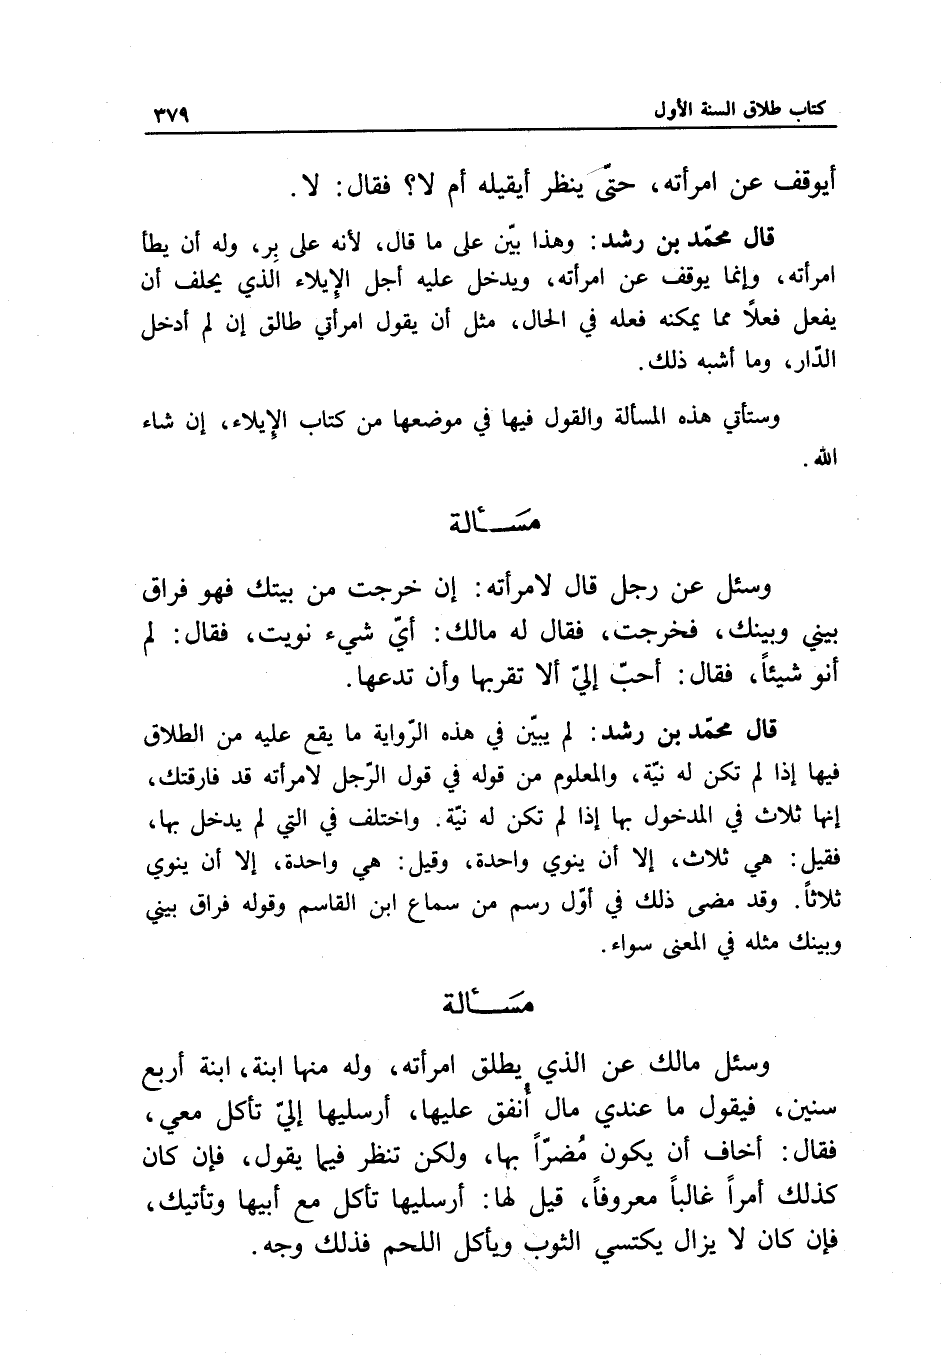 كتاب طلاق السنة الأول ٣٧٩
أيوقف عن امرأته، حتّى ينظر أيقيله أم لا؟ فقال: لا.
قال محمّد بن رشد: وهذا بيّن على ما قال، لأنه على بِر، وله أن يطأ
امرأته، وإنما يوقف عن امرأته، ويدخل عليه أجل الإيلاء الذي يحلف أن
يفعل فعلًا مما يمكنه فعله في الحال، مثل أن يقول امرأتي طالق إن لم أدخل
الدّار، وما أشبه ذلك.
وستأتي هذه المسألة والقول فيها في موضعها من كتاب الإيلاء، إن شاء
الله.
مَسْـأَلة
وسئل عن رجل قال لامرأته: إن خرجت من بيتك فهو فراق
بيني وبينك، فخرجت، فقال له مالك: أيّ شيء نويت، فقال: لم
أنو شيئاً، فقال: أحبّ إليّ ألا تقربها وأن تدعها.
قال محمّد بن رشد: لم يبيّن في هذه الرّواية ما يقع عليه من الطلاق
فيها إذا لم تكن له نيّة، والمعلوم من قوله في قول الرّجل لامرأته قد فارقتك،
إنها ثلاث في المدخول بها إذا لم تكن له نيّة. واختلف في التي لم يدخل بها،
فقيل: هي ثلاث، إلا أن ينوي واحدة، وقيل: هي واحدة، إلا أن ينوي
ثلاثاً. وقد مضى ذلك في أوّل رسم من سماع ابن القاسم وقوله فراق بيني
وبينك مثله في المعنى سواء.
مَسْـأَلة
وسئل مالك عن الذي يطلق امرأته، وله منها ابنة، ابنة أربع
سنين، فيقول ما عندي مال أُنفق عليها، أرسليها إليّ تأكل معي،
فقال: أخاف أن يكون مُضرّاً بها، ولكن تنظر فيما يقول، فإن كان
كذلك أمراً غالباً معروفاً، قيل لها: أرسليها تأكل مع أبيها وتأتيك،
فإن كان لا يزال يكتسي الثوب ويأكل اللحم فذلك وجه.